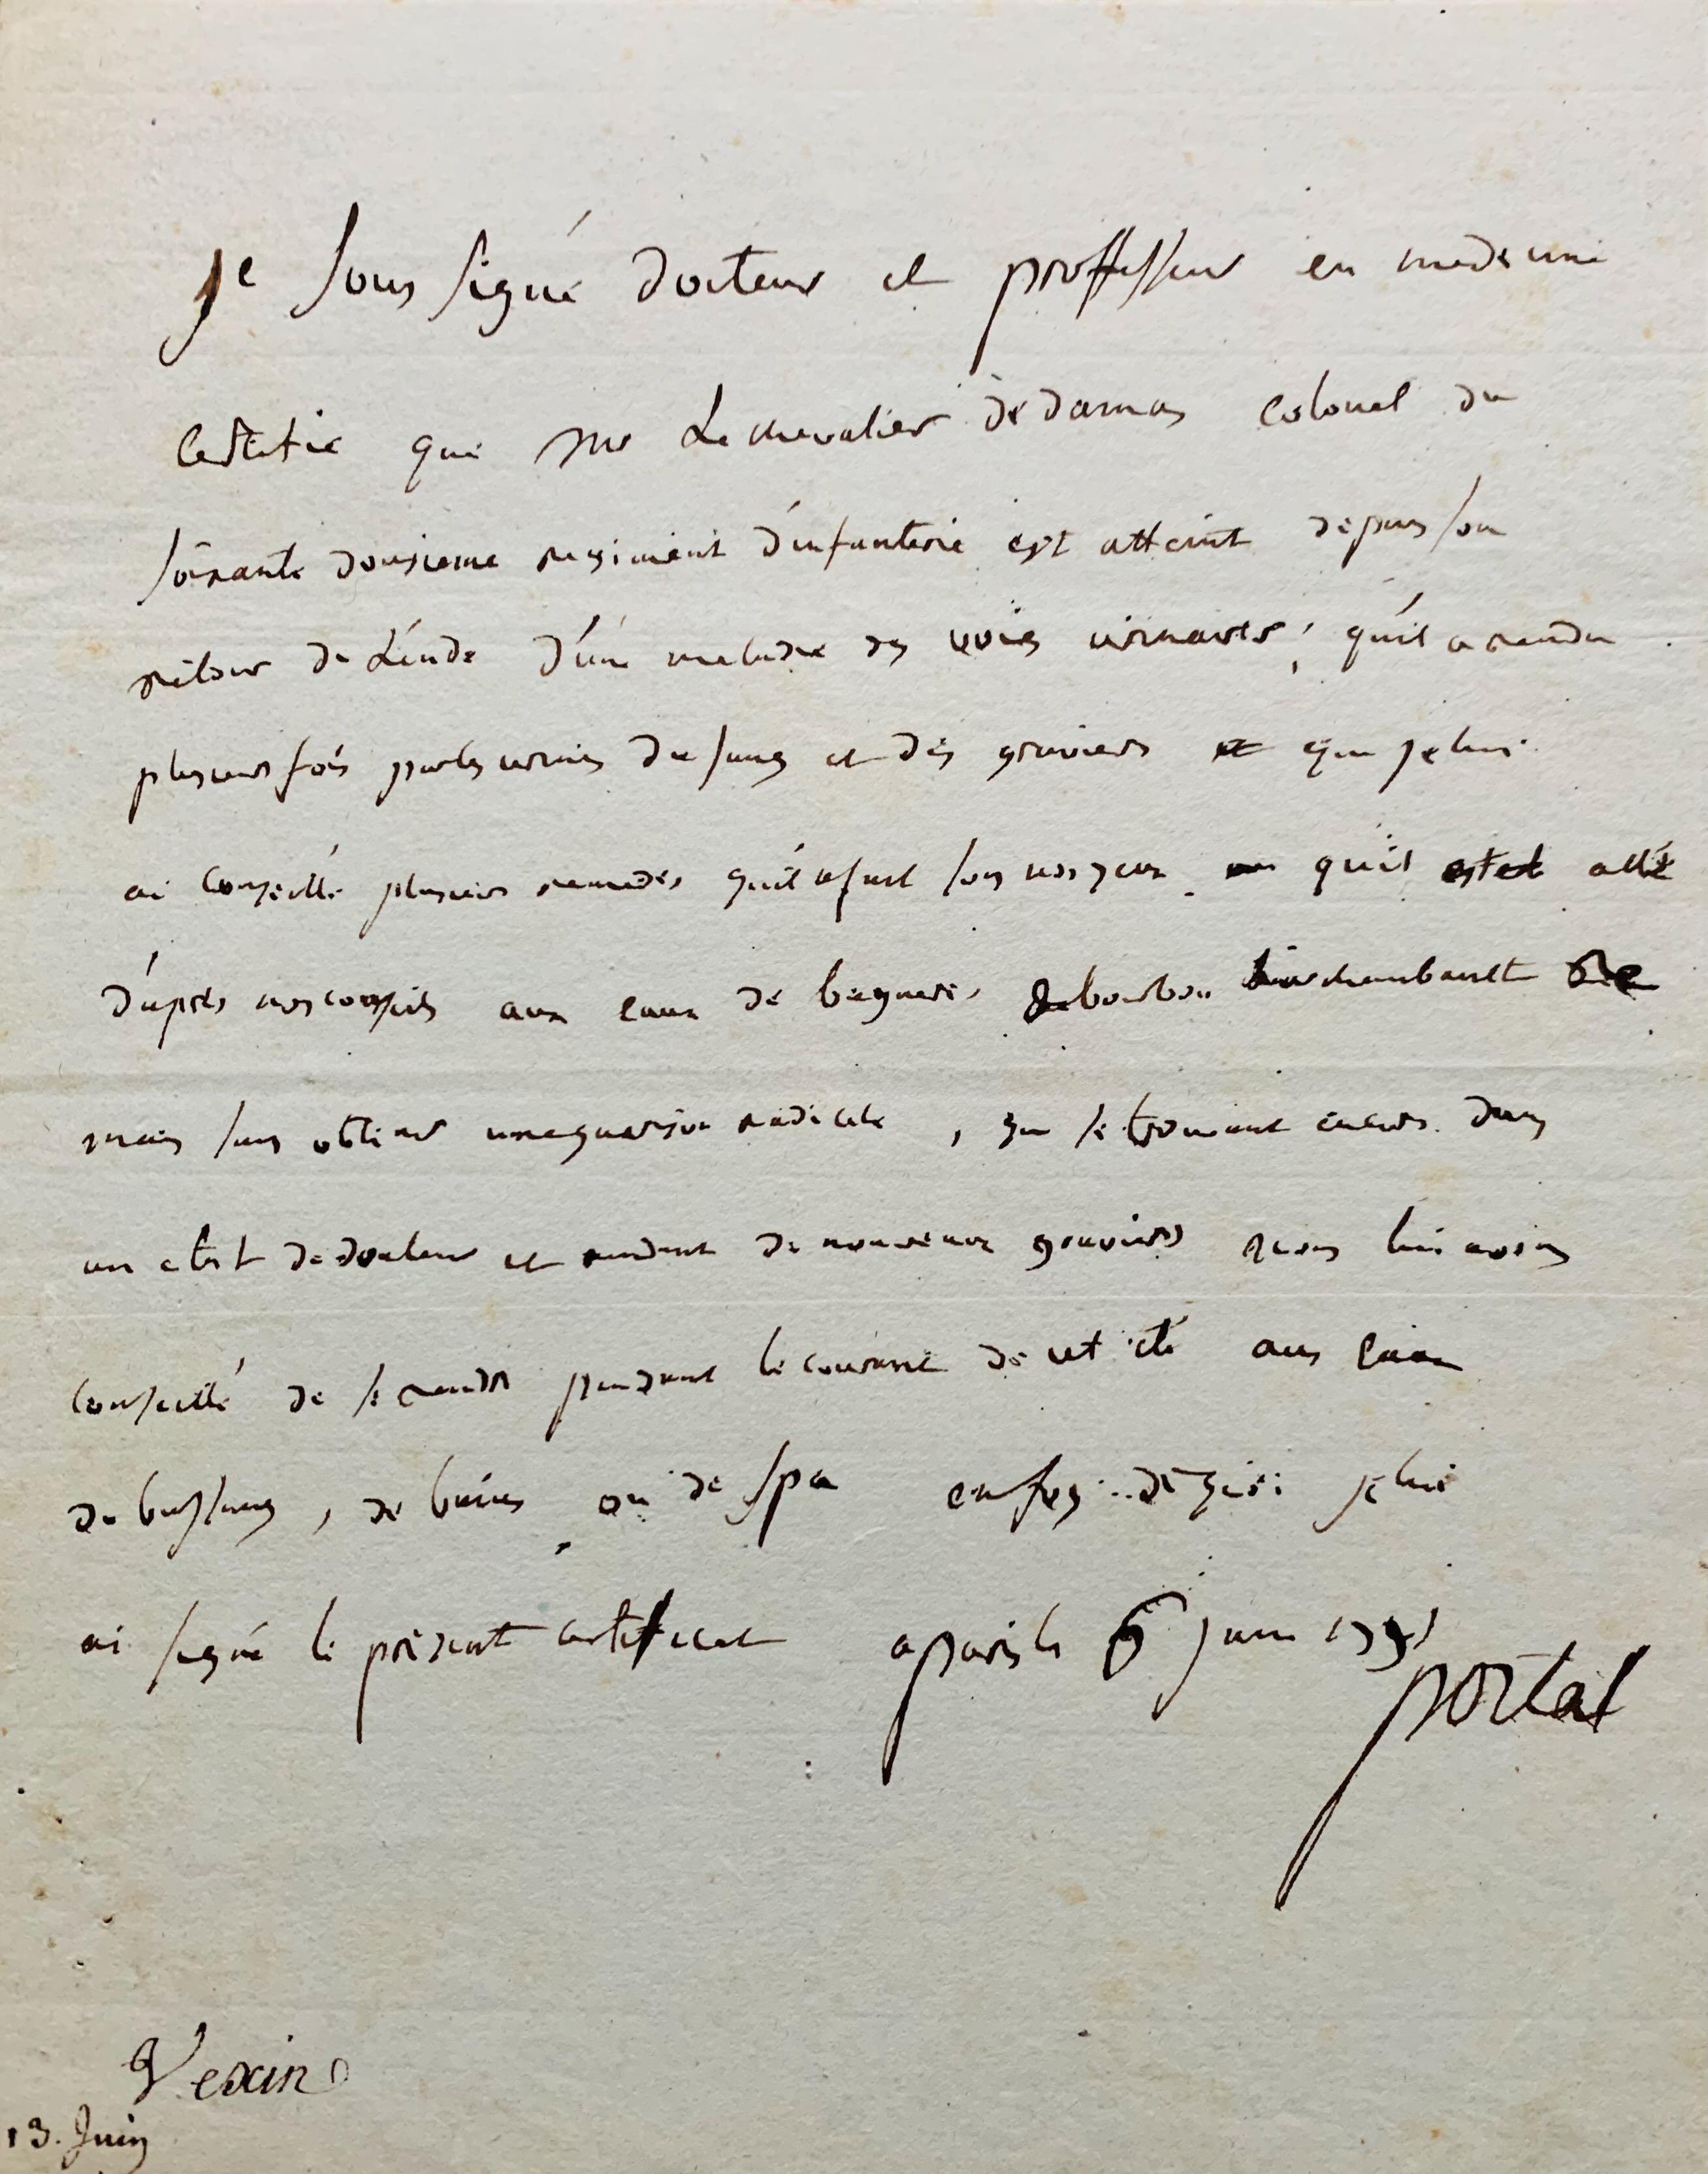 je sous signé docteur et proffesseur en medecine
certifie que mr Le chevalier de damas colonel du
soixante douzieme regiment d'infanterie est atteint depuis son
retour de L'inde d'une maladie des voies urinaires, qu'il a rendu
plusieurs fois par les urines du sang et des graviers et que je lui
ai conseillé plusieurs remedes qu'il a fait sous nos yeux qu'il est allé
d'après nos conseils aux eaux de bagneres de bourbon L'archambault
mais sans obtenir une guerison radicale, que se trouvant encore dans
un etat de douleur et rendant de nouveaux graviers nous lui avons
conseillé de se rendre pendant le courant de cet été aux eaux
de bussang, de bains ou de spa en foy de quoi je lui
ai signé le présent certificat a paris le 6 juin 1791
portal
Vexin
13. Juin